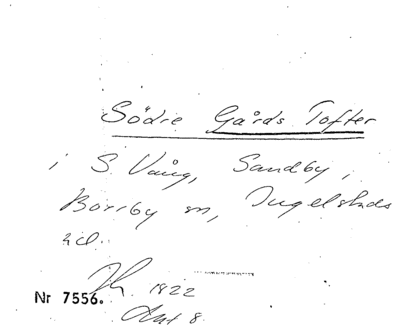 Södre Gårds Tofter
i S. Vång, Sandby,
Borrby sn, Ingelstads
hd.
1822
Nr 7556.
Akt 8